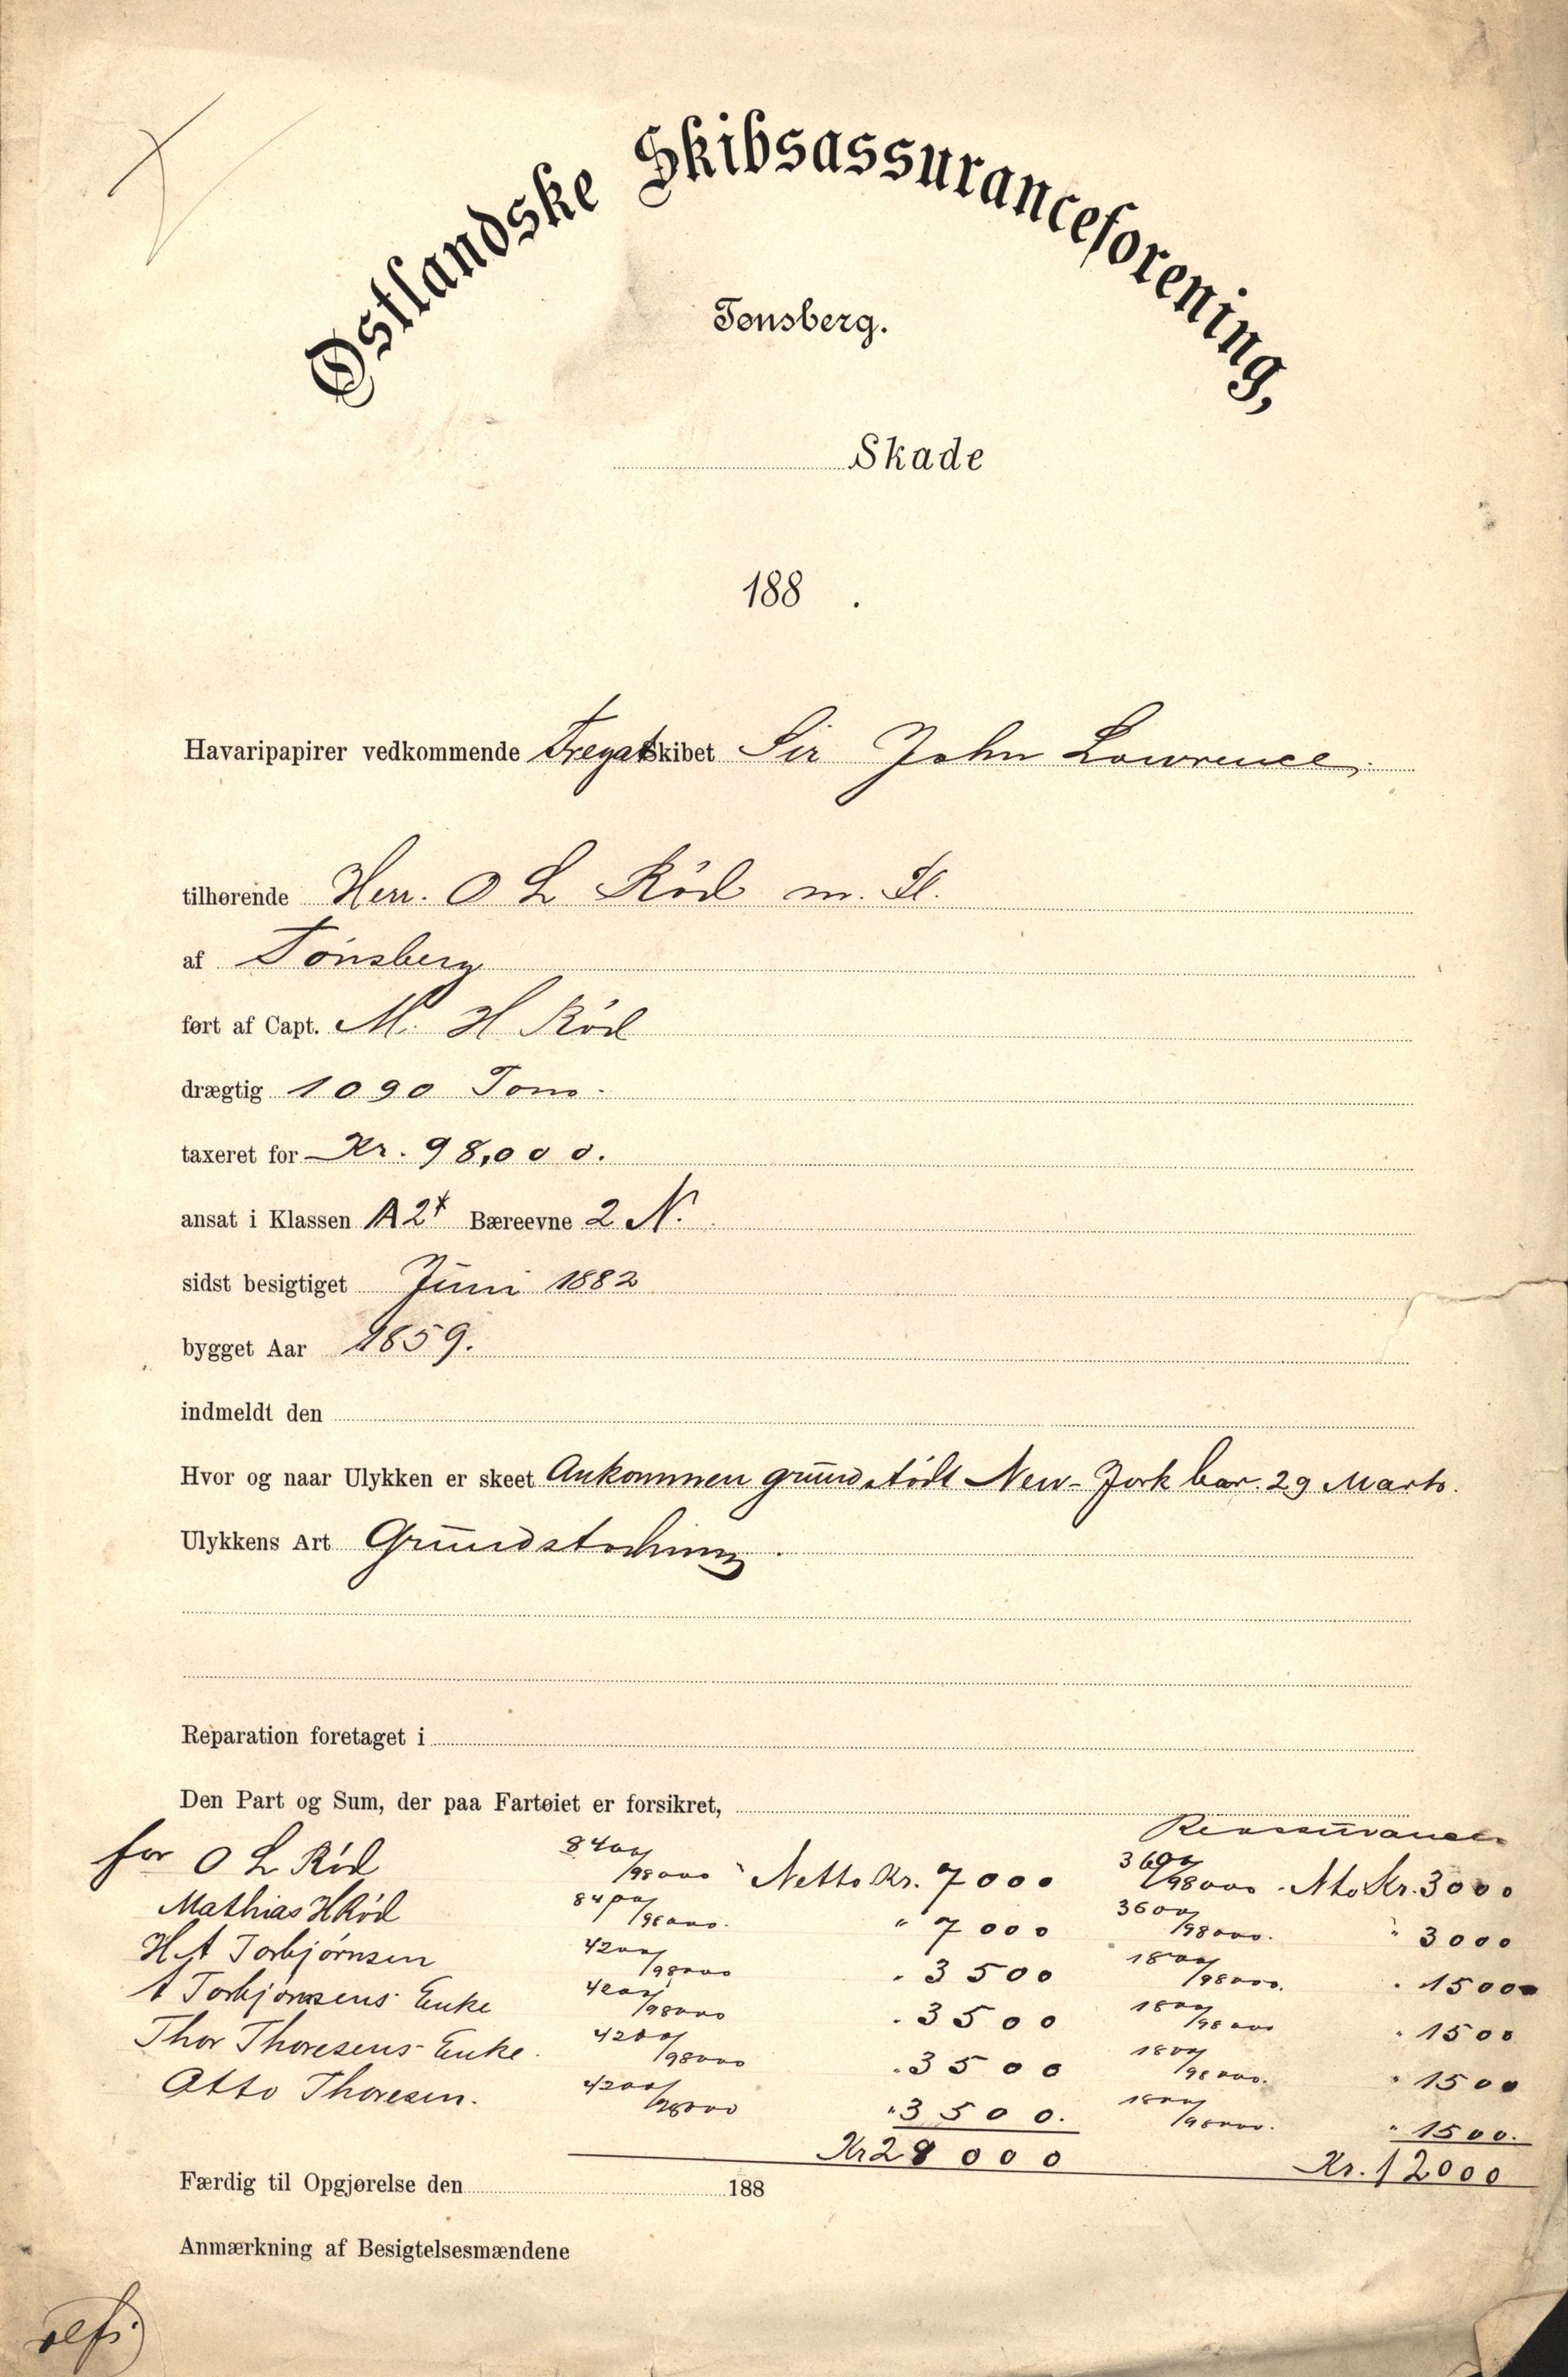 Østlandske Skibsassuranceforening,
Tønsberg.
Skade
188 .
Havaripapirer vedkommende Fregatskibet Sir John Lawrence.
tilhørende Herr. O L Rød m. Fl.
af Tønsberg
ført af Capt. M. H Rød
drægtig 1090 Tons.
taxeret for Kr. 98,000.
ansat i Klassen A2* Bæreevne 2 N.
sidst besigtiget Juni 1882
bygget Aar 1859.
indmeldt den
Hvor og naar Ulykken er skeet Ankommen grundstødt New-York har. 29 Marts.
Ulykkens Art Grundstødning.
Reparation foretaget i
Den Part og Sum, der paa Fartøiet er forsikret,
Reassurance
for O L Rød 8400/98000 " Netto Kr. 7000 3600/98000 . Nto Kr. 3000
Mathias H Rød 8400/98000. " 7000 3600/98000. " 3000
H. A Torbjørnsen 4200/98000 " 3500 1800/98000. " 1500
A Torbjørnsens Enke 4200/98000 " 3500 1800/98000 " 1500
Thor Thoresens Enke. 4200/98000 " 3500 1800/98000. " 1500
Otto Thoresen. 4200/98000 " 3500. 1800/98000. " 1500.
Kr 28000 Kr. 12000
Færdig til Opgjørelse den 188
Anmærkning af Besigtelsesmændene